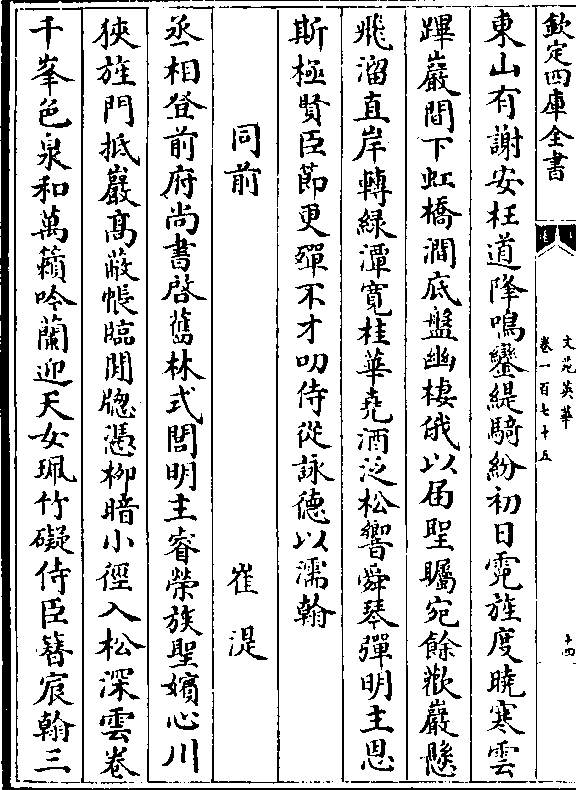 欽定四庫全書
文苑英華
卷一百七十五
十四
東山有謝安枉道降鳴鑾緹騎紛初日霓旌度曉寒雲
蹕巖間下虹橋澗底盤幽棲俄以屆聖矚宛餘歡巖懸
飛溜直岸轉緑潭寛桂華堯酒泛松響舜琴彈明主恩
斯極賢臣節更殫不才叨侍從詠德以濡翰
同前 崔湜
丞相登前府尚書啓舊林式閭明主睿榮族聖嬪心川
狹旌門抵巖髙蔽帳臨閒牕憑柳暗小徑入松深雲卷
千峯色泉和萬籟吟蘭迎天女珮竹礙侍臣簪宸翰三